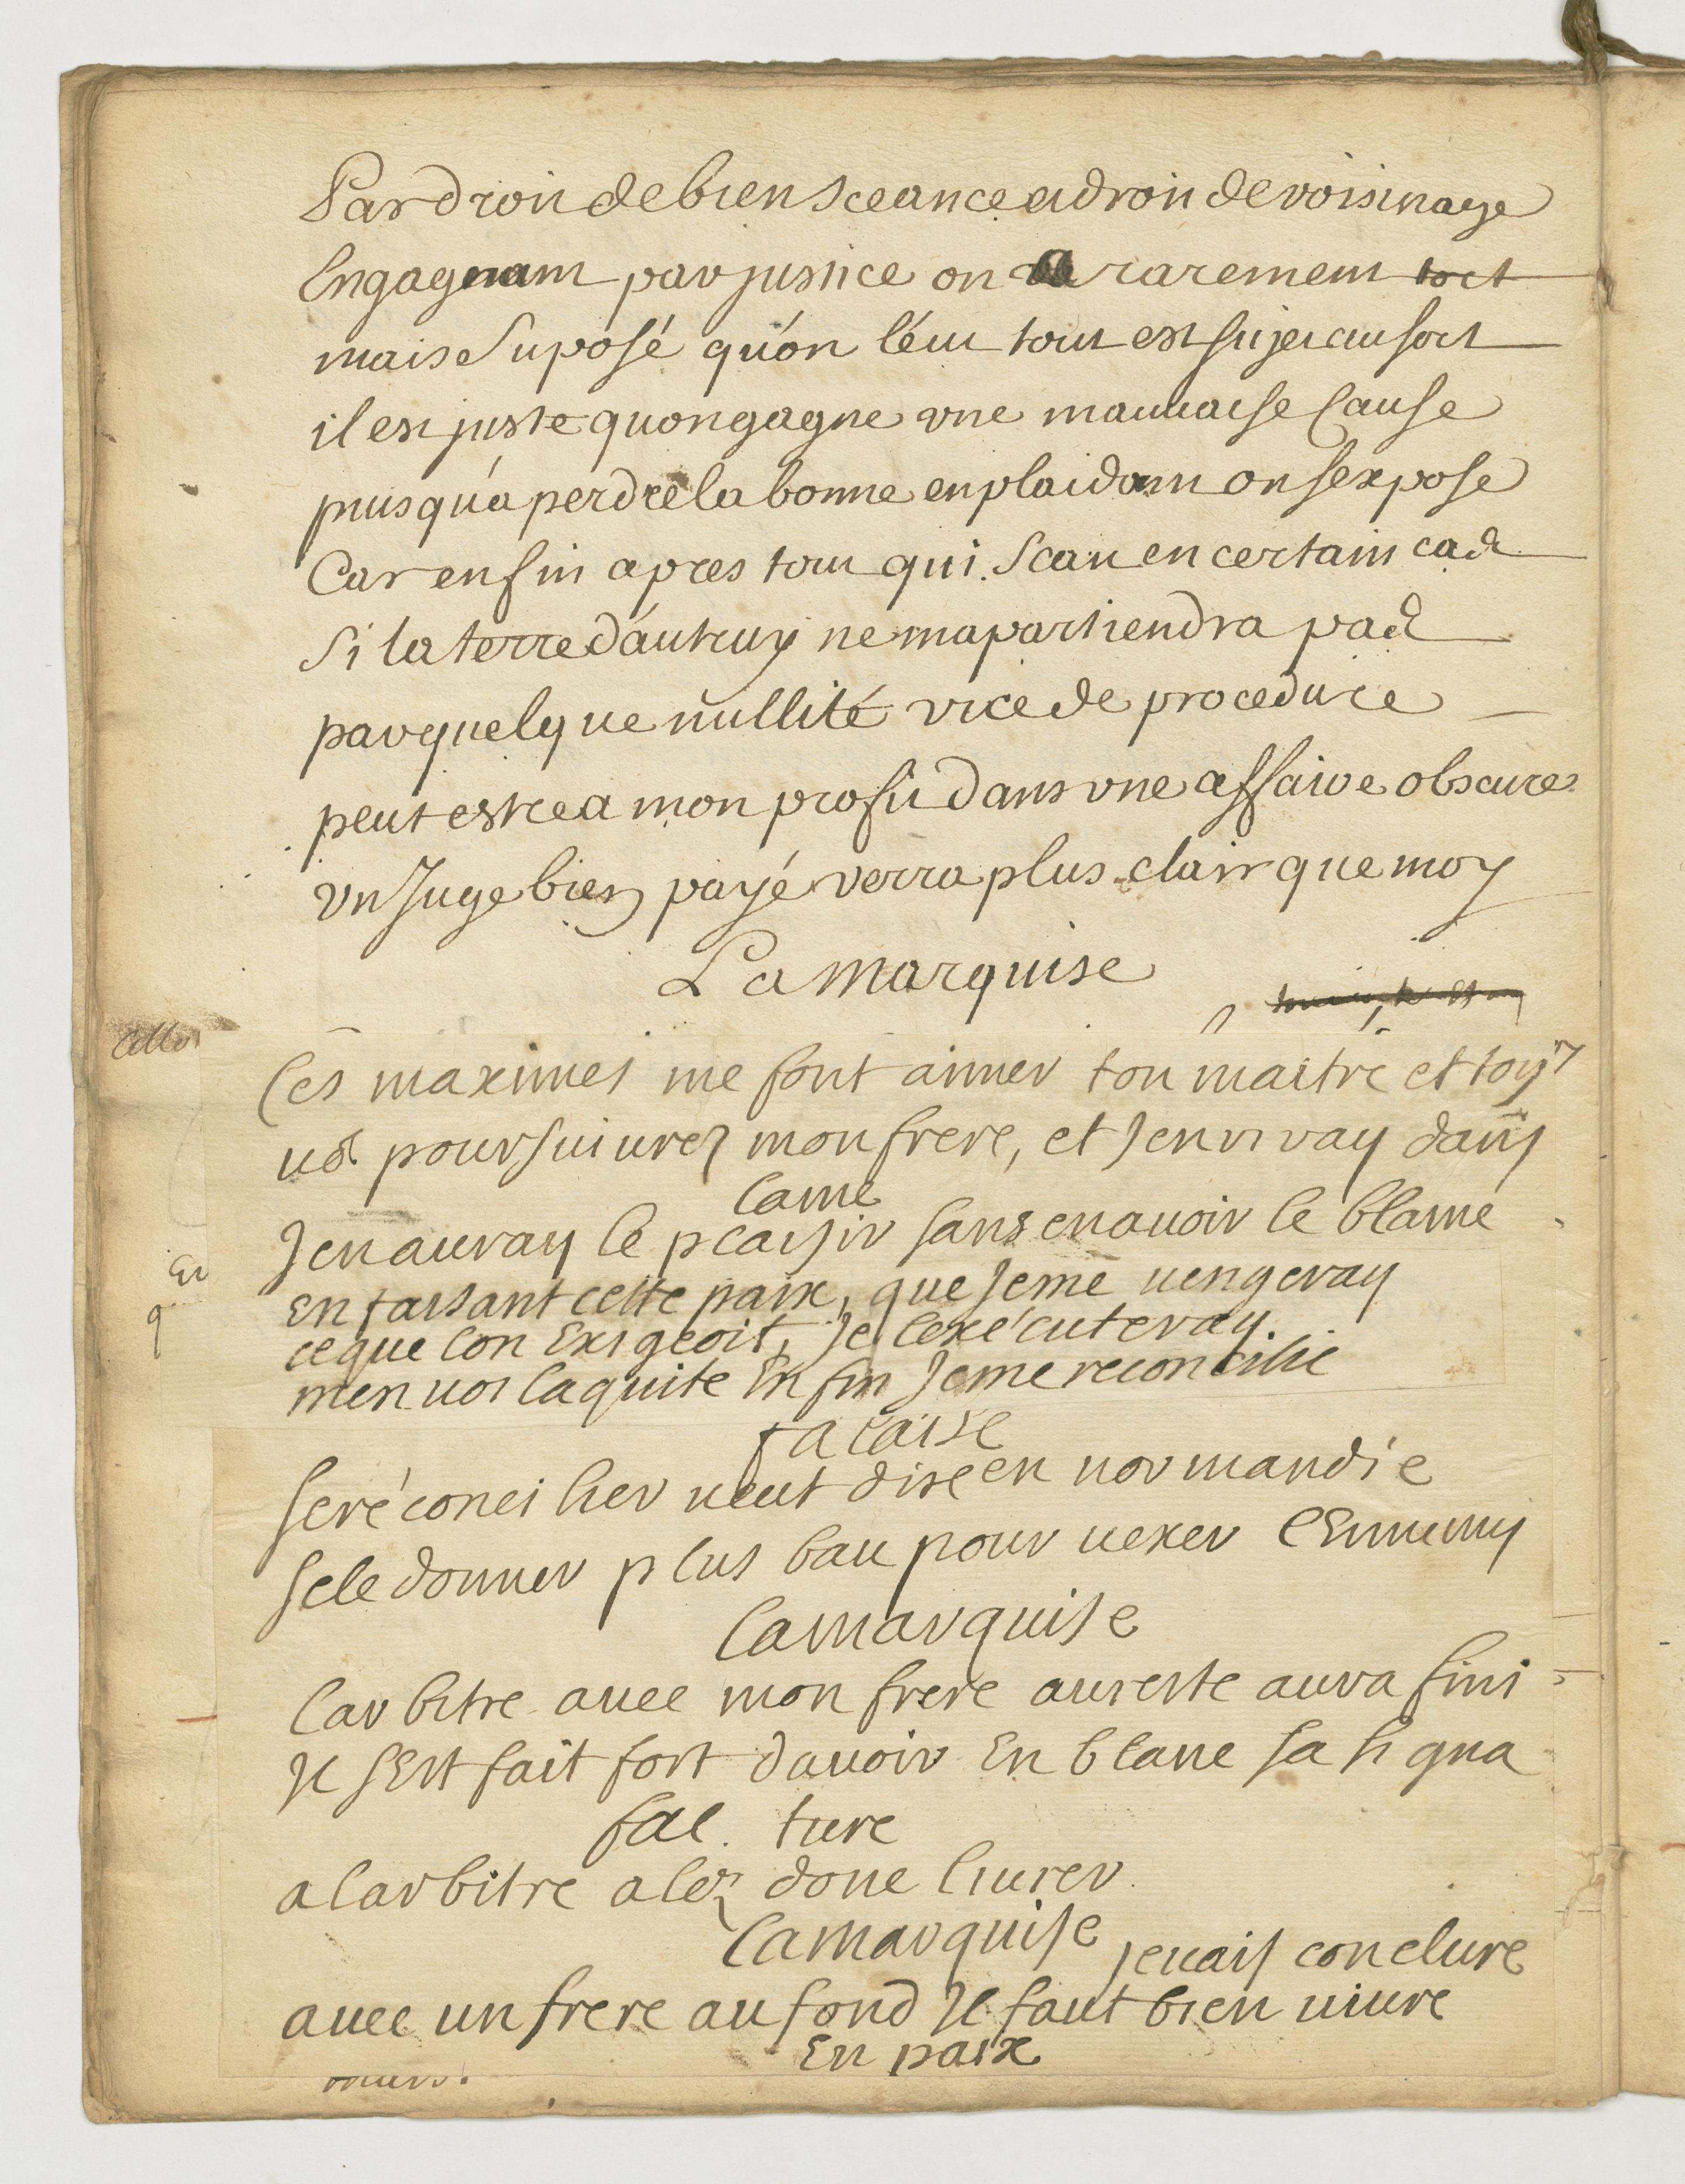 Par droit de bien sceance et droit de voisinage
Engagnant par justice on a rarement tort
mais suposé qu'on l'eut tout est sujet au sort
il est juste quon gagne une mauuaise Cause
puis qu'a perdre la bonne en plaidant on s'expose
Car enfin apres tout qui scait en certain cas
Si la terre d'autruy ne m'apartiendra pas
par quelque nullité vice de procedure
peut estre a mon profit dans une affaire obscure
un Juge bien payé verra plus clair que moy
La Marquise
Ces maximes me font aimer ton maitre et toy
uos poursuiurez mon frere, et Jenrivay dans
lame
Jen auray le plaisir sans en auoir le blame
En faisant cette paix, que Jeme uengeray
ce que lon Exigeoit, Je lexécuteray.
men uoi la quite Enfin Jeme reconcilie
falaise
se réconcilier ueut dire en normandie
se le donner plus bau pour uexer l'Ennemy
la marquise
larbitre auec mon frere aureste aura fini
Jl sEst fait fort dauoir En blanc sa signa
fal. ture
a larbitre alez donc liurer
la marquise
Jeuais conclure
auec un frere au fond Jl faut bien uiure
En paix
En
q